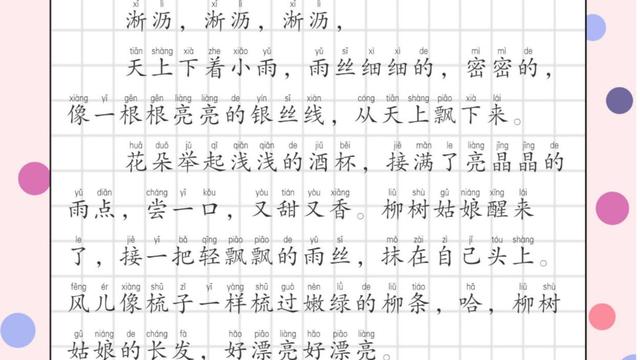 xī lì xī lì xī lì
淅沥，淅沥，淅沥，
tiān shàng xià zhe xiǎo yǔ yǔ sī xì xì de mì mì de
天上下着小雨，雨丝细细的，密密的，
xiàng yī gēn gēn liàng liàng de yín sī xiàn cóng tiān shàng piāo xià lái
像一根根亮亮的银丝线，从天上飘下来。
huā duǒ jǔ qǐ qiǎn qiǎn de jiǔ bēi jiē mǎn le liàng jīng jīng de
花朵举起浅浅的酒杯，接满了亮晶晶的
yǔ diǎn cháng yī kǒu yòu tián yòu xiāng liǔ shù gū niáng xǐng lái
雨点，尝一口，又甜又香。柳树姑娘醒来
le jiē yī bǎ qīng piāo piāo de yǔ sī mǒ zài zì jǐ tóu shàng
了，接一把轻飘飘的雨丝，抹在自己头上。
fēng ér xiàng shū zi yī yàng shū guò nèn lǜ de liǔ tiáo hā liǔ shù
风儿像梳子一样梳过嫩绿的柳条，哈，柳树
gū niáng de cháng fà hǎo piào liàng hǎo piào liàng
姑娘的长发，好漂亮好漂亮。